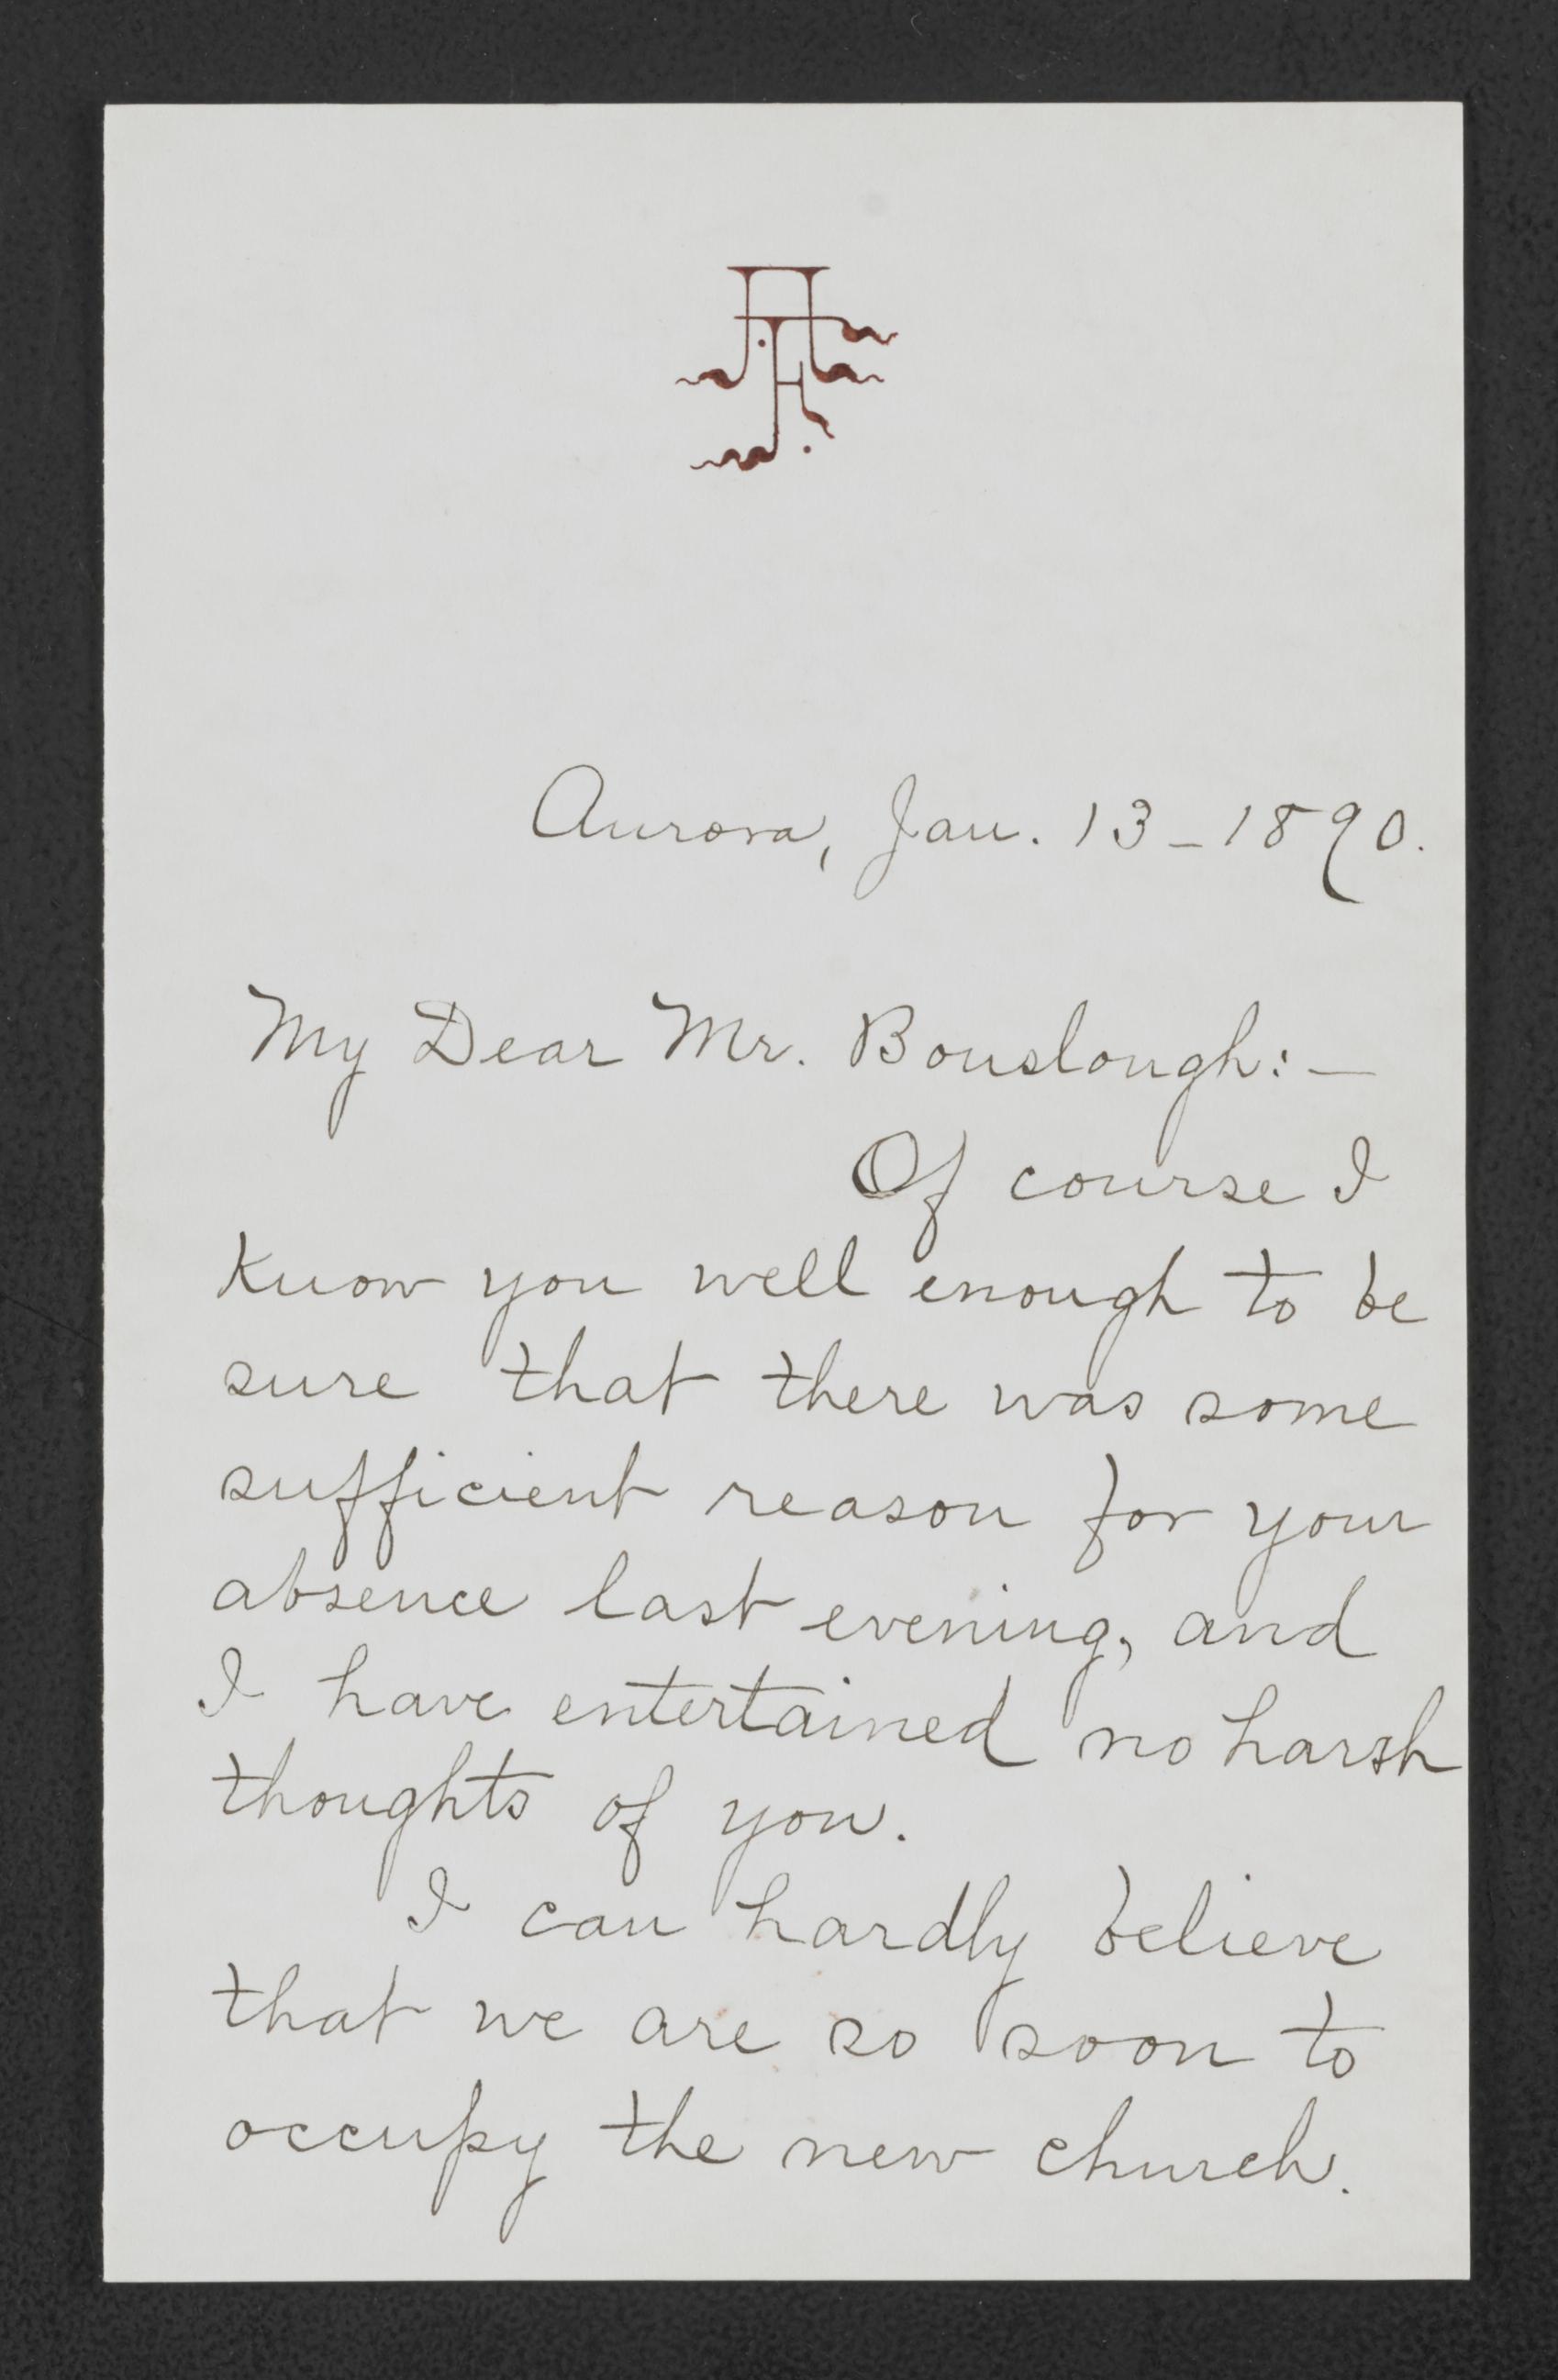 Aurora, Jan. 13 - 1890.
My Dear Mr. Bouslough: —
Of course I
know you well enough to be
sure that there was some
sufficient reason for your
absence last evening, and
I have entertained no harsh
thoughts of you.
I can hardly believe
that we are so soon to
occupy the new church.